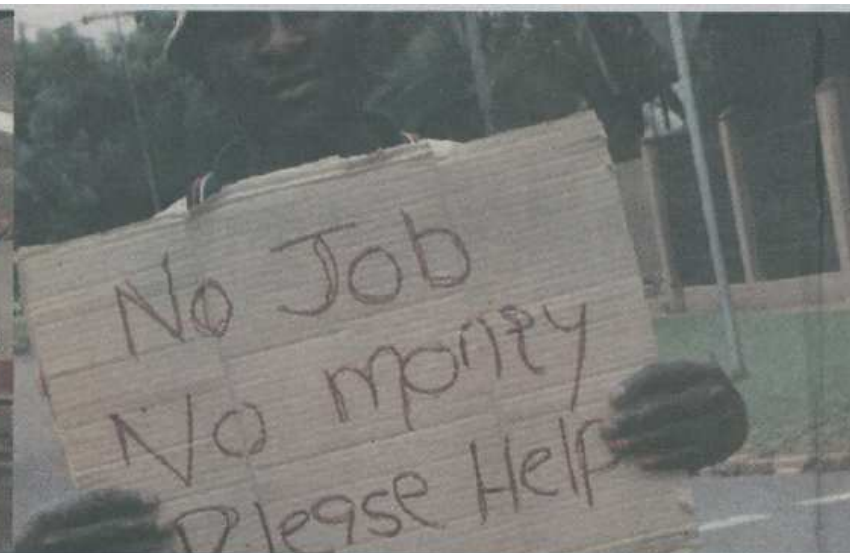 No Job
No money
Please Help